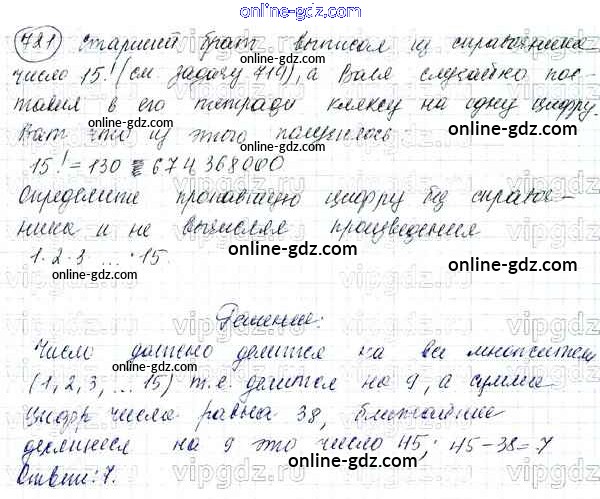 online-gdz.com
721 Старший брат выписал из справочника
число 15! (см. задачу 719), а Валя случайно пос-
тавил в его тетради кляксу на одну цифру.
Вот что из этого получилось:
15! = 130 674 368000
Определите пропавшую цифру без справоч-
ника и не вычисляя произведения
1·2·3 ... · 15.
Решение:
Число должно делится на все множители
(1,2,3, ... 15) т.е. делится на 9, а сумма
цифр числа равна 38, ближайшие
делящиеся на 9 это число 45; 45-38=7
Ответ: 7.